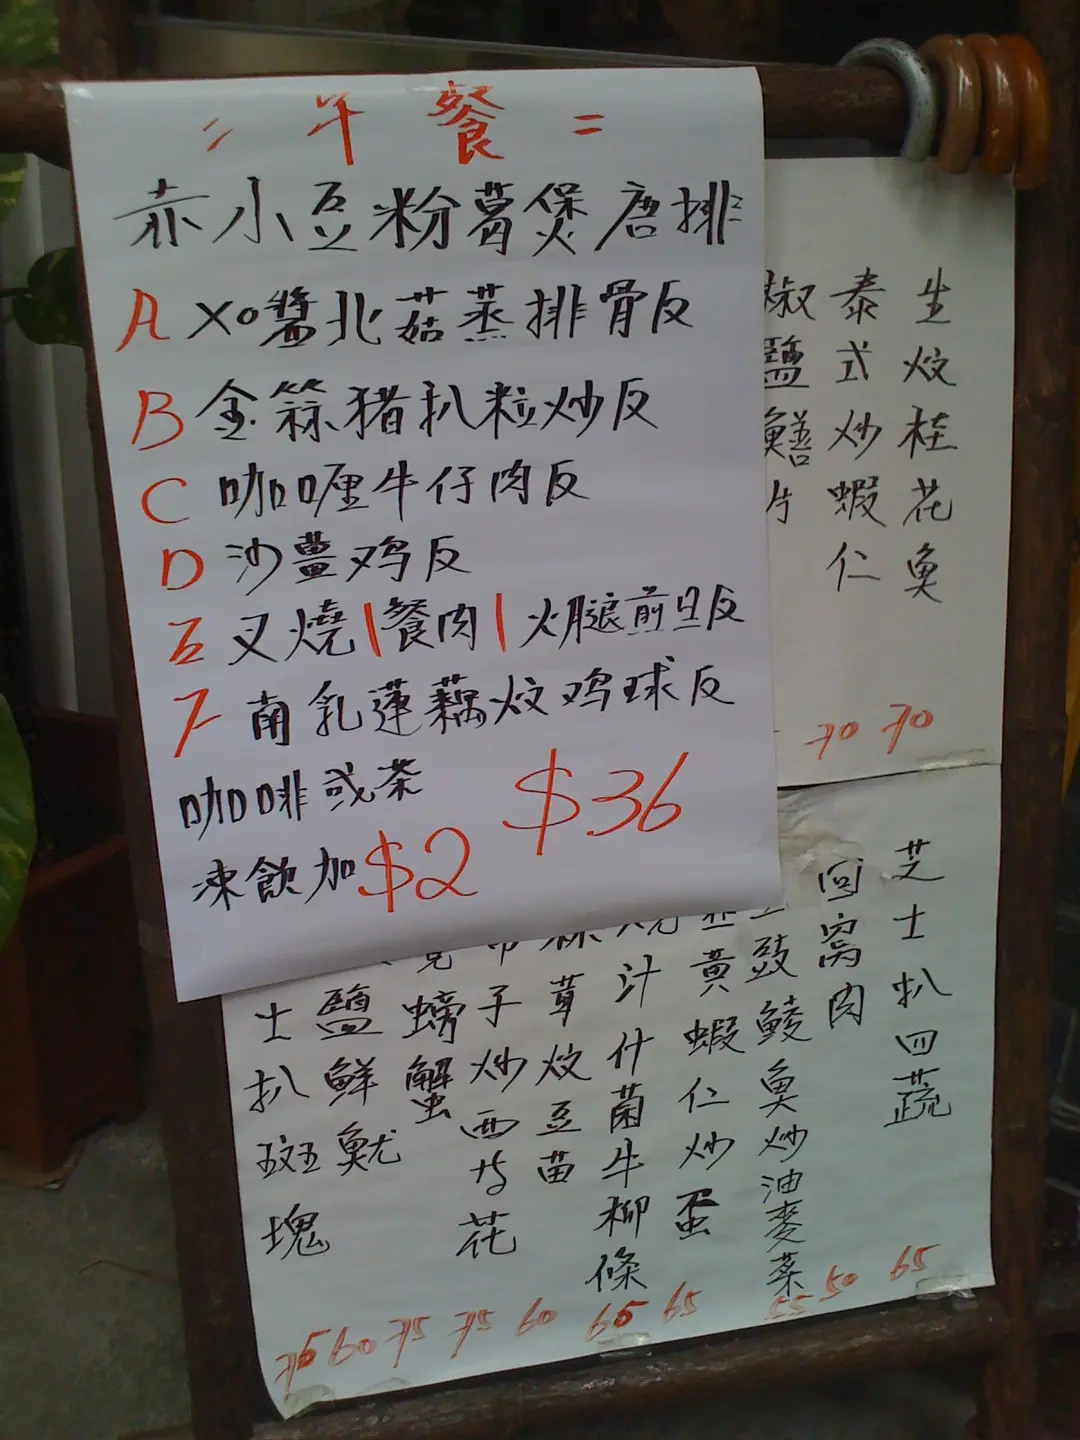 〃 午餐 =
赤小豆粉葛煲唐排
A XO醬北菇蒸排骨反
B 金蒜豬扒粒炒反
C 咖喱牛仔肉反
D 沙薑鸡反
E 叉燒|餐肉|火腿煎旦反
F 南乳蓮藕炆鸡球反
咖啡或茶 $36
凍飲加$2
生炆桂花魚 70
泰式炒蝦仁 70
椒鹽鱔片
芝士扒四蔬 65
回窩肉 50
豉鯪魚炒油麥菜 55
韮黃蝦仁炒蛋 65
燒汁什菌牛柳條 65
蒜茸炆豆苗 60
帶子炒西蘭花 75
螃蟹 75
鹽鮮魷 60
士扒斑塊 75